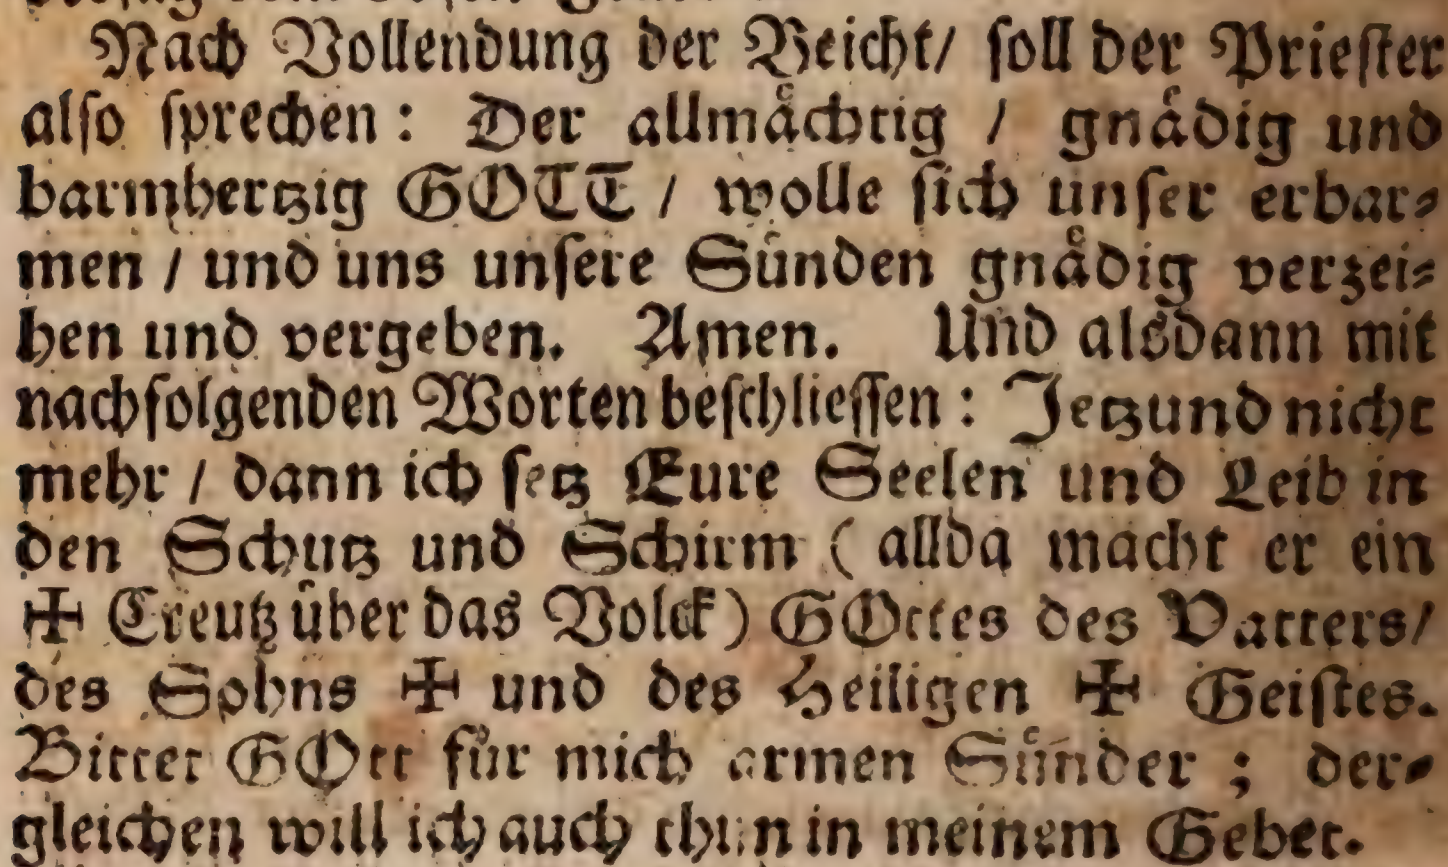 Nach Vollendung der Beicht/ ſoll der Prieſter
alſo ſprechen: Der allmaͤchtig / gnaͤdig und
barmhertzig GOTT / wolle ſich unſer erbar⸗
men / und uns unſere Suͤnden gnaͤdig verzei⸗
hen und vergeben. Amen. Und alsdann mit
nachfolgenden Worten beſchlieſſen: Jetzund nicht
mehr / dann ich ſetz Eure Seelen und Leib in
den Schutz und Schirm ( allda macht er ein
✠ Creutz uͤber das Volck) GOttes des Vatters/
des Sohns ✠ und des Heiligen ✠ Geiſtes.
Bittet GOtt fuͤr mich armen Suͤnder; der⸗
gleichen will ich auch thun in meinem Gebet.